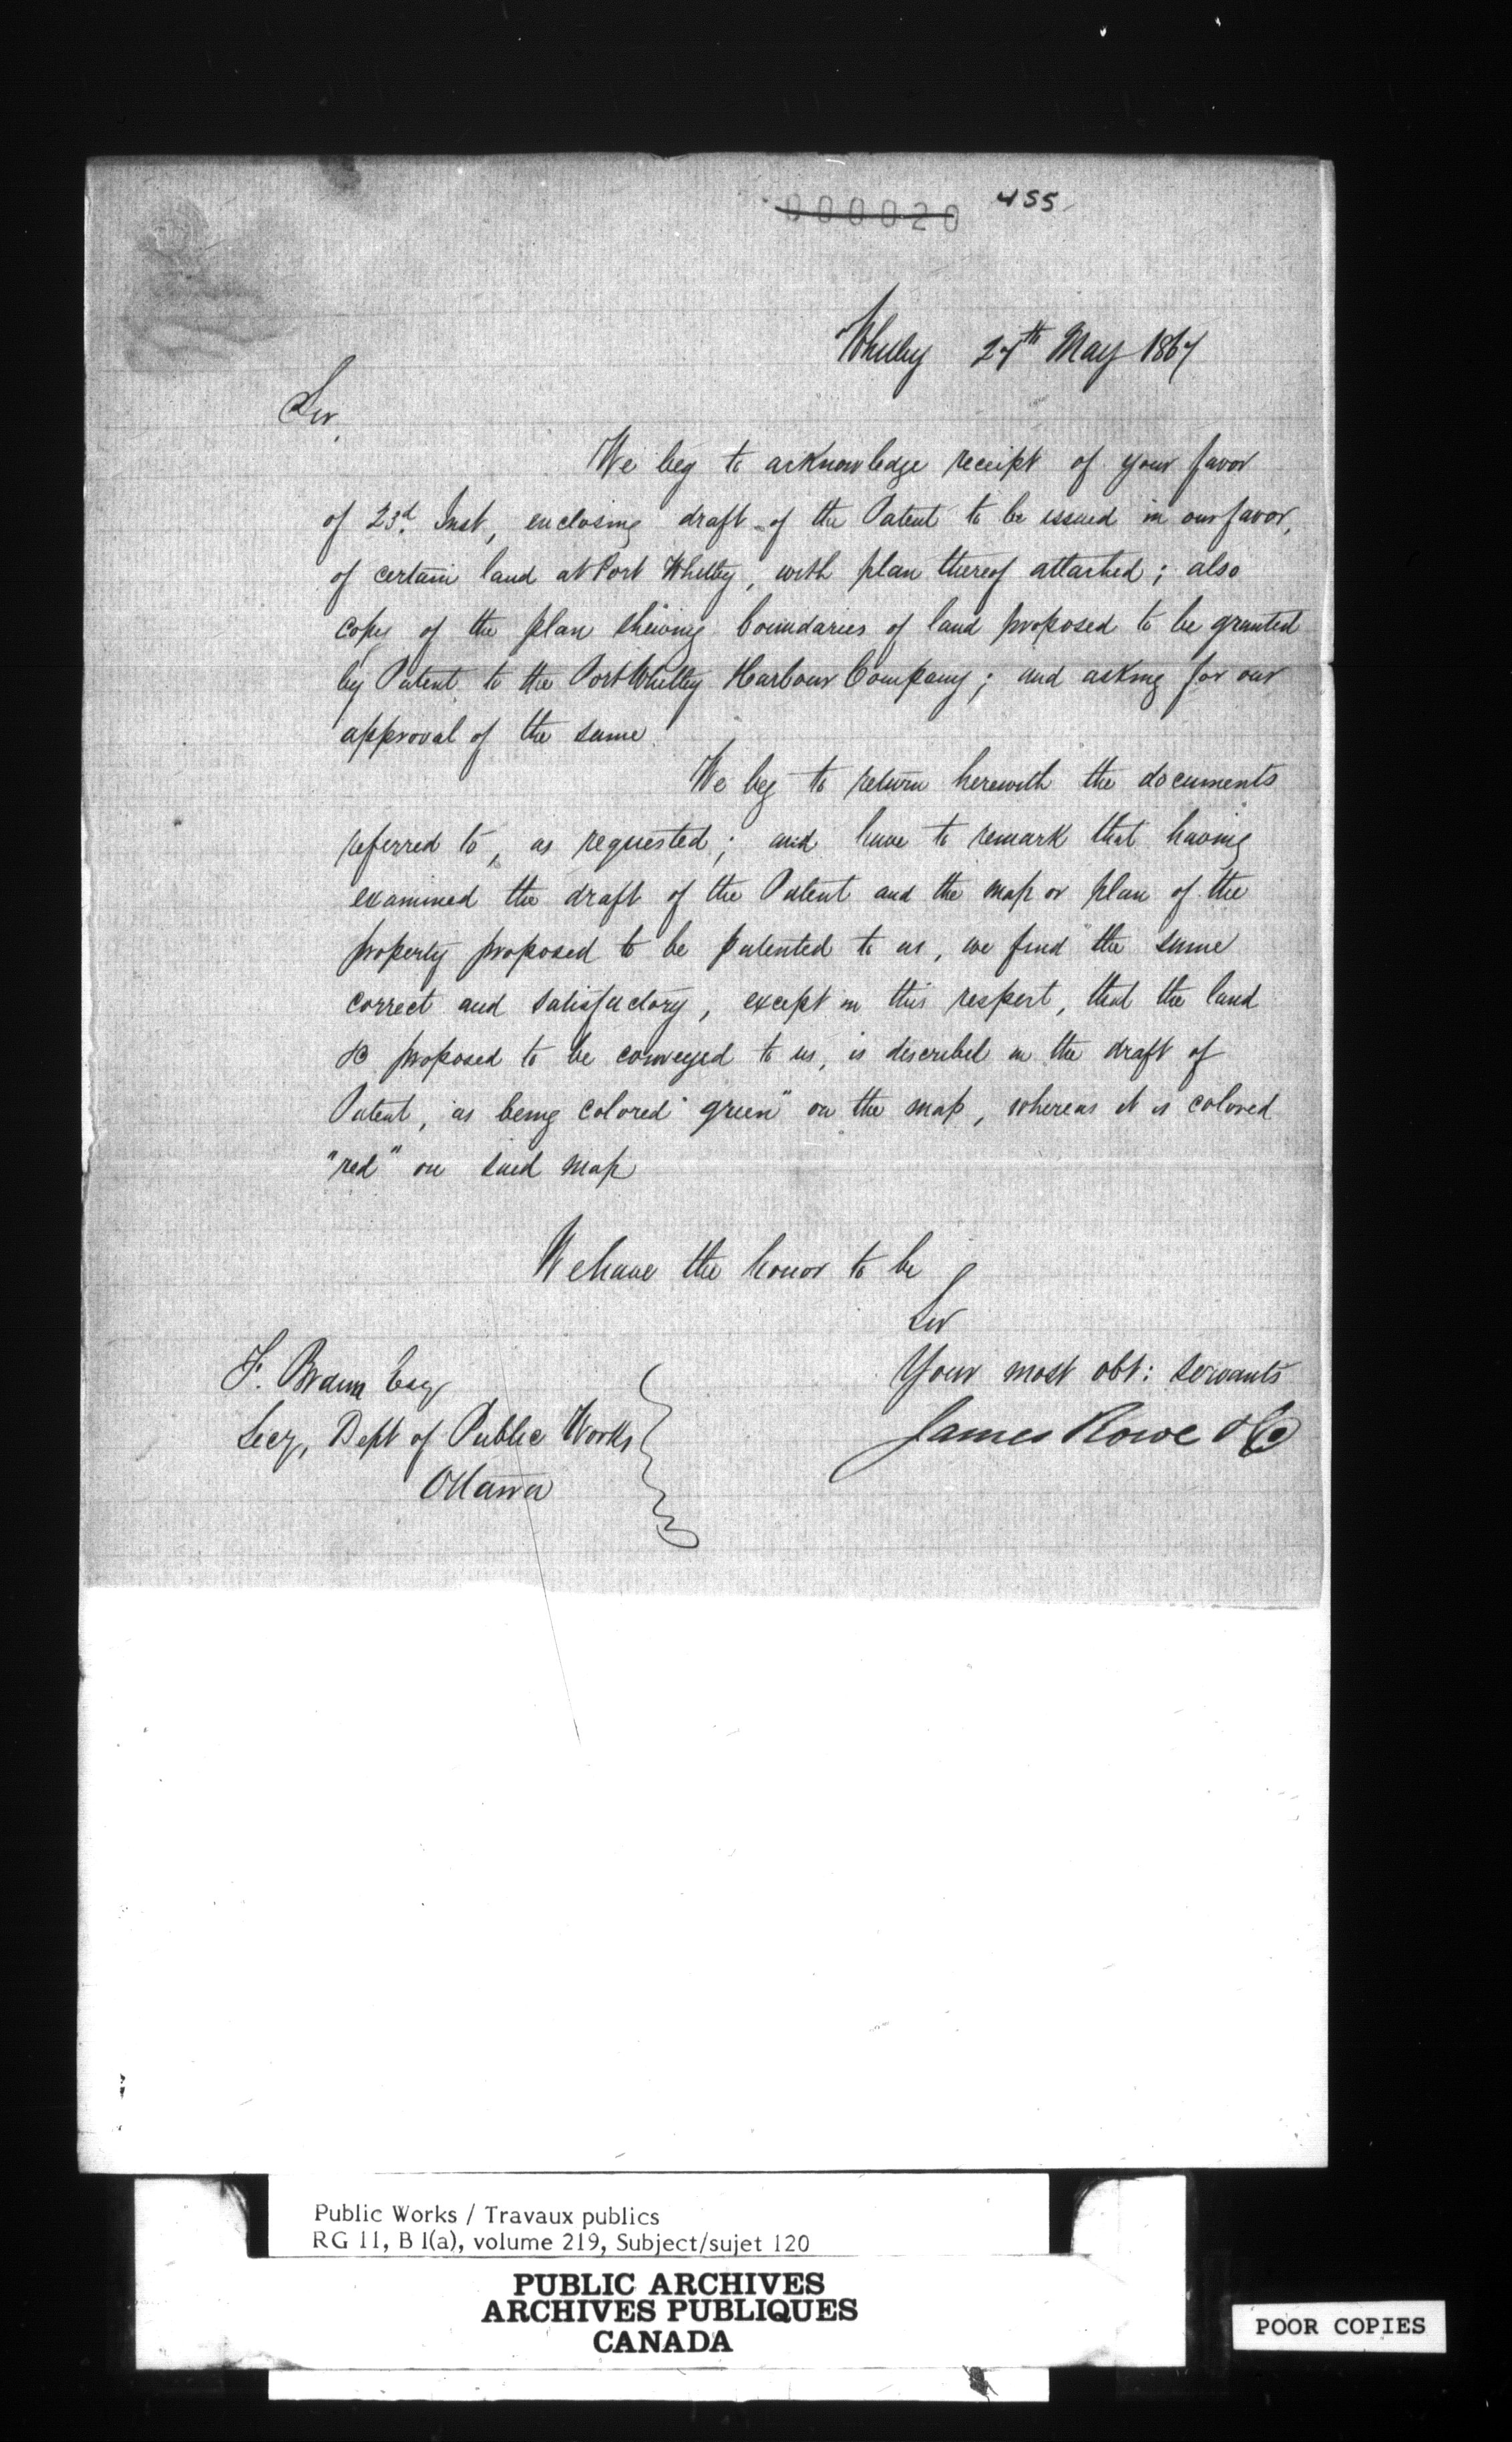 000020 455
Whitby 27th May 1867
Sir,
We beg to acknowledge receipt of your favor
of 23d. Inst, enclosing draft of the Patent to be issued in our favor,
of certain land at Port Whitby, with plan thereof attached; also
copy of the plan shewing boundaries of land proposed to be granted
by Patent to the Port Whitby Harbour Company; and asking for our
approval of the same
We beg to return herewith the documents
referred to, as requested; and have to remark that having
examined the draft of the Patent and the map or plan of the
property proposed to be patented to us, we find the same
correct and satisfactory, except in this respect, that the land
&c proposed to be conveyed to us, is described in the draft of
Patent, as being colored "green" on the map, whereas it is colored
"red" on said map
We have the honor to be
Sir
Your most obt: servants
James Rowe & Co
F. Braun Esq
Secy, Dept of Public Works
Ottawa
Public Works / Travaux publics
RG 11, B 1(a), volume 219, Subject/sujet 120
PUBLIC ARCHIVES
ARCHIVES PUBLIQUES
CANADA
POOR COPIES